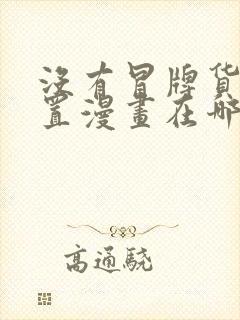 沒有冒牌貨
置漫畫在哪
高通驍